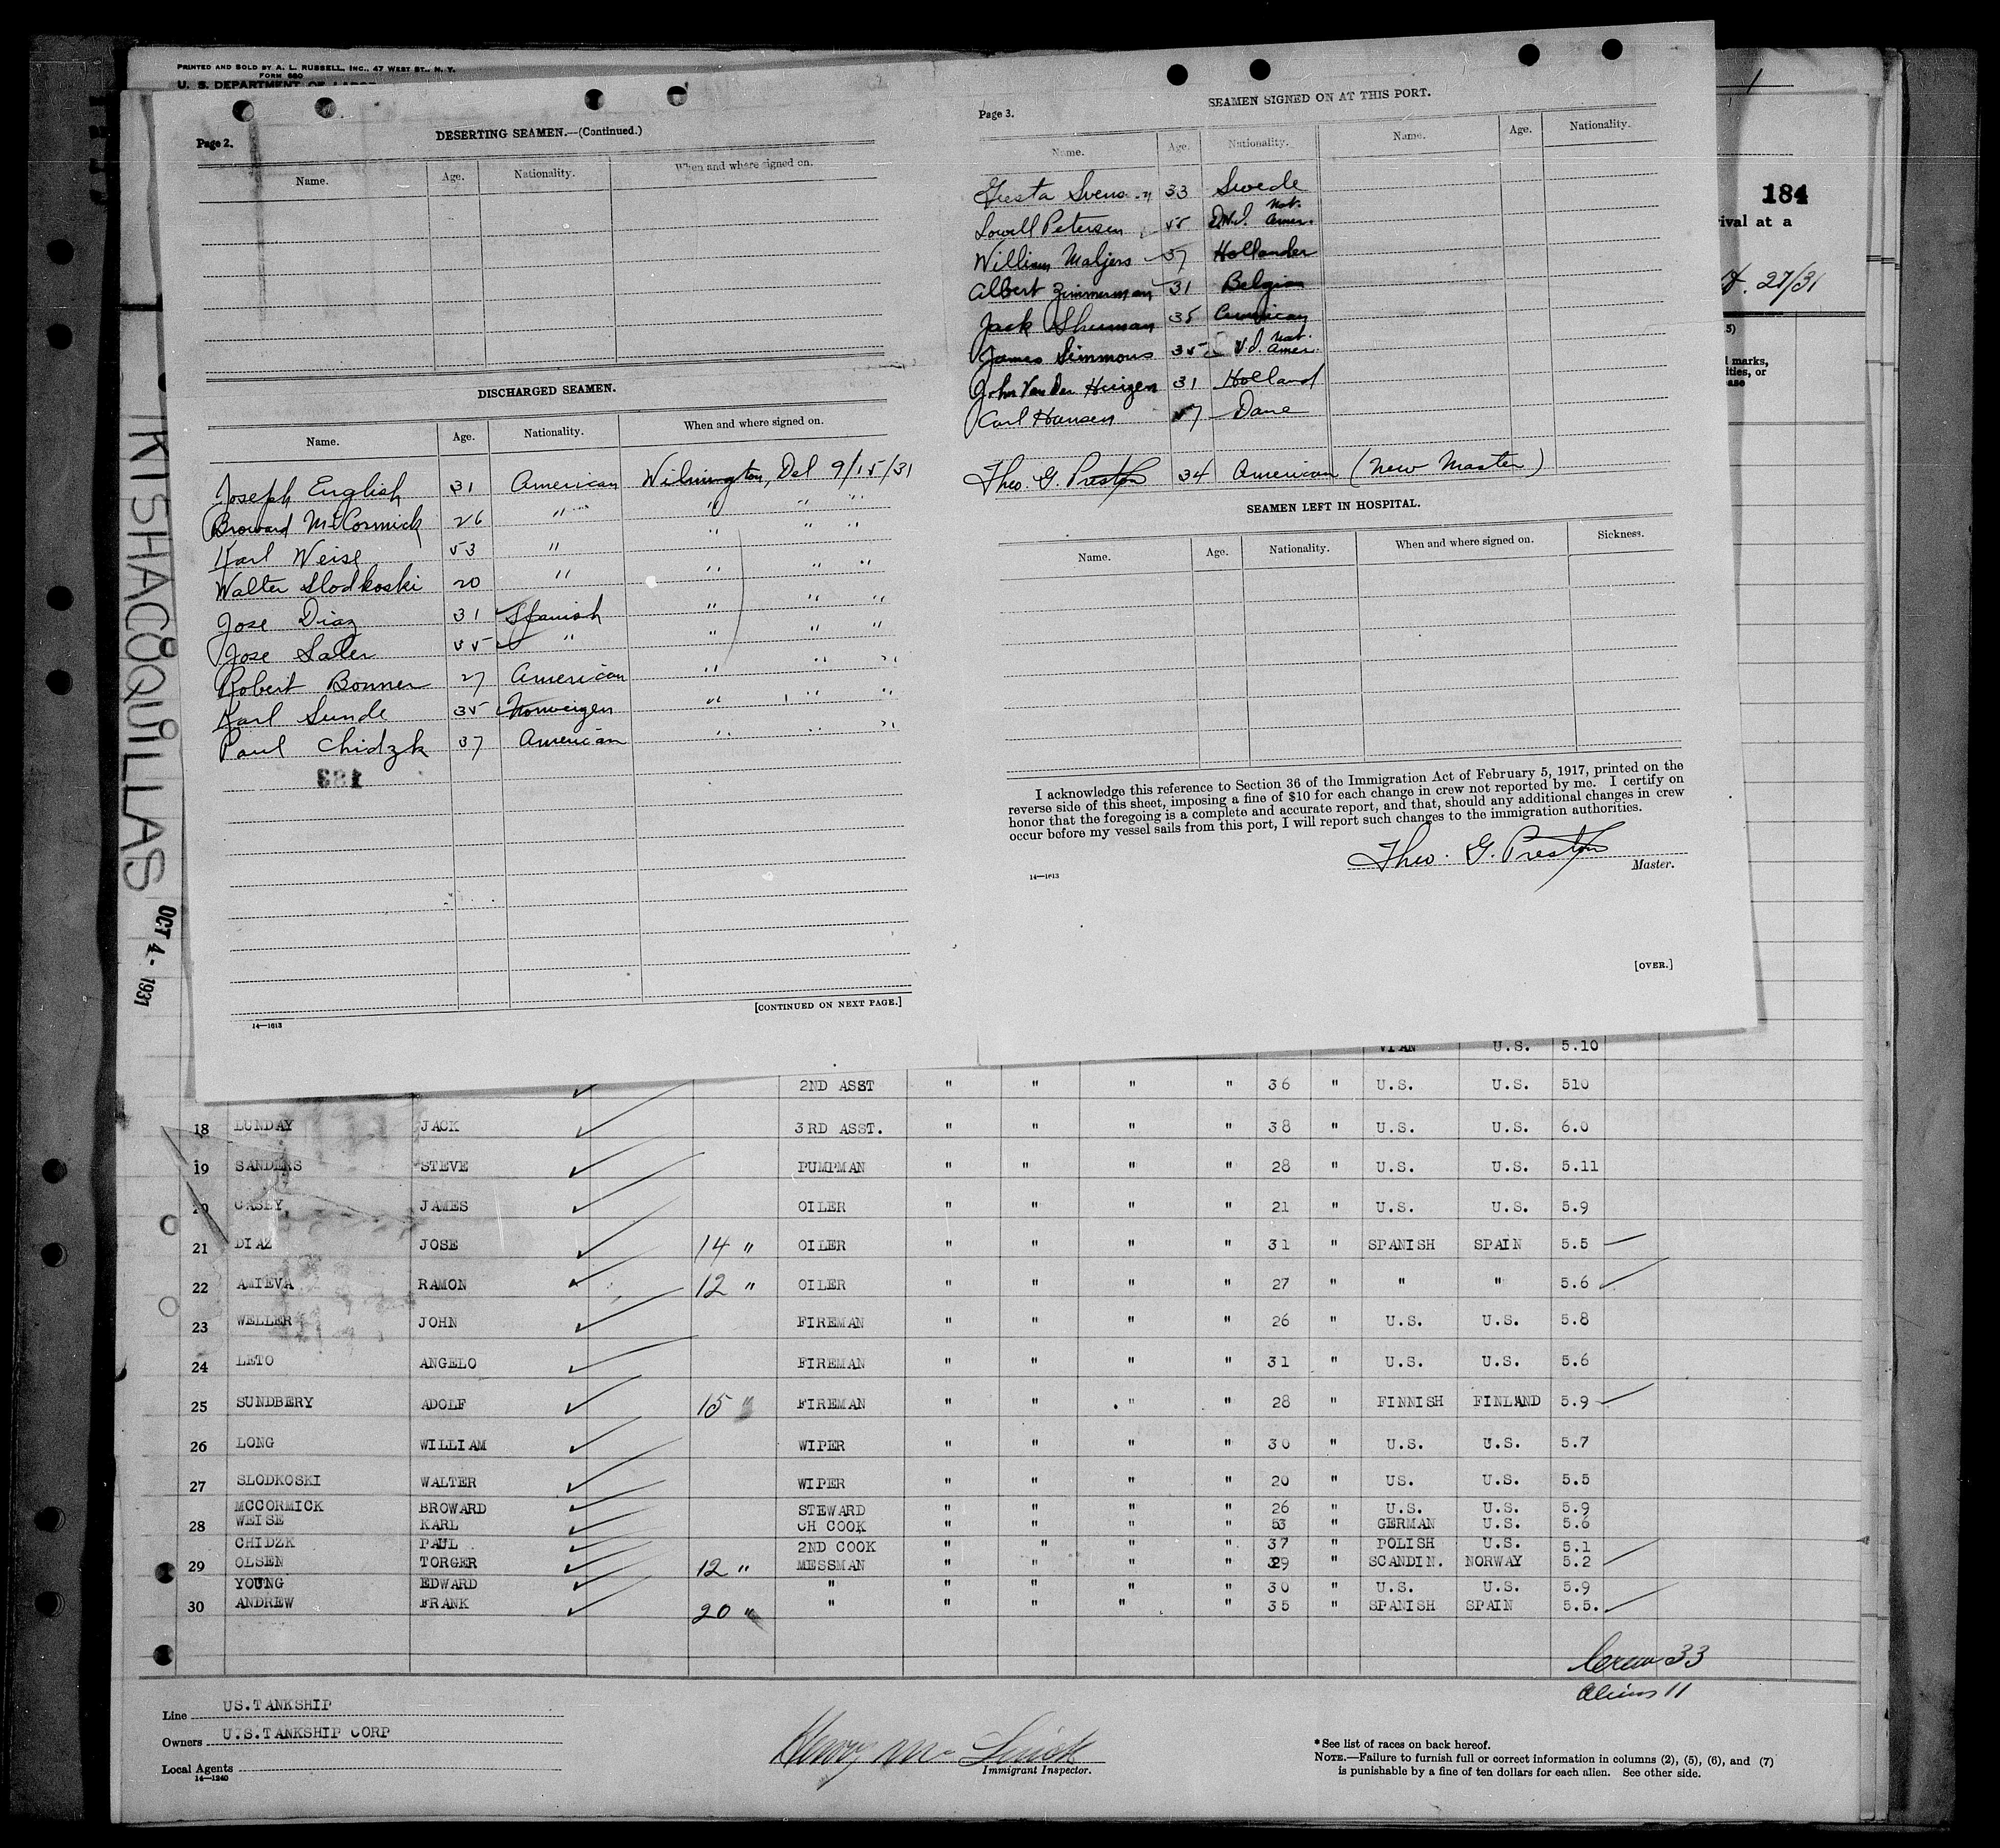 PRINTED AND SOLD BY A. L. RUSSELL, INC., 47 WEST ST., N. Y.
FORM 680
U. S. DEPARTMENT OF LABOR
1
184
rival at a
27/31
5)
marks,
ities, or
ease
KISHACOQUILLAS
OCT 4 - 1931
Page 2.
DESERTING SEAMEN.—(Continued.)
Name. Age. Nationality. When and where signed on.
DISCHARGED SEAMEN.
Name. Age. Nationality. When and where signed on.
Joseph English 31 American Wilmington, Del 9/15/31
Broward McCormick 26 " " " "
Karl Weise 53 " " " "
Walter Slodkoski 20 " " " "
Jose Diaz 31 Spanish " " "
Jose Saler 55 " " " "
Robert Bonner 27 American " " "
Karl Sunde 35 Norweigen " " "
Paul Chidzk 37 American " " "
183
[CONTINUED ON NEXT PAGE.]
14—1613
Page 3.
SEAMEN SIGNED ON AT THIS PORT.
Name. Age. Nationality. Name. Age. Nationality.
Gusta Svenson 33 Swede
Lowell Petersen 55 D.W.I. Nat. Amer.
William Maljers 57 Hollander
Albert Zimmerman 31 Belgian
Jack Sherman 35 American
James Simmons 35 V.I. Nat. Amer.
John Van Der Huizen 31 Holland
Carl Hansen 57 Dane
Theo. G. Preston 34 American (New Master)
SEAMEN LEFT IN HOSPITAL.
Name. Age. Nationality. When and where signed on. Sickness.
I acknowledge this reference to Section 36 of the Immigration Act of February 5, 1917, printed on the
reverse side of this sheet, imposing a fine of $10 for each change in crew not reported by me. I certify on
honor that the foregoing is a complete and accurate report, and that, should any additional changes in crew
occur before my vessel sails from this port, I will report such changes to the immigration authorities.
Theo. G. Preston
Master.
14—1613
[OVER.]
VIAN U.S. 5.10
2ND ASST " " " " 36 " U.S. U.S. 510
18 LUNDAY JACK 3RD ASST. " " " " 38 " U.S. U.S. 6.0
19 SANDERS STEVE PUMPMAN " " " " 28 " U.S. U.S. 5.11
20 CASEY, JAMES OILER " " " " 21 " U.S. U.S. 5.9
21 DIAZ JOSE 14 " OILER " " " " 31 " SPANISH SPAIN 5.5
22 AMIEVA RAMON 12 " OILER " " " " 27 " " " 5.6
23 WELLER JOHN FIREMAN " " " " 26 " U.S. U.S. 5.8
24 LETO ANGELO FIREMAN " " " " 31 " U.S. U.S. 5.6
25 SUNDBERY ADOLF 15 " FIREMAN " " " " 28 " FINNISH FINLAND 5.9
26 LONG WILLIAM WIPER " " " " 30 " U.S. U.S. 5.7
27 SLODKOSKI WALTER WIPER " " " " 20 " US. U.S. 5.5
MCCORMICK BROWARD STEWARD " " " " 26 " U.S. U.S. 5.9
28 WEISE KARL CH COOK " " " " 53 " GERMAN U.S. 5.6
CHIDZK PAUL 2ND COOK " " " " 37 " POLISH U.S. 5.1
29 OLSEN TORGER 12 " MESSMAN " " " " 29 " SCANDIN. NORWAY 5.2
YOUNG EDWARD " " " " " 30 " U.S. U.S. 5.9
30 ANDREW FRANK 20 " " " " " " 35 " SPANISH SPAIN 5.5.
Crew 33
Aliens 11
Line US.TANKSHIP
Owners U.S.TANKSHIP CORP
Local Agents
14—1240
Henry Mc
Immigrant Inspector.
*See list of races on back hereof.
NOTE.—Failure to furnish full or correct information in columns (2), (5), (6), and (7)
is punishable by a fine of ten dollars for each alien. See other side.